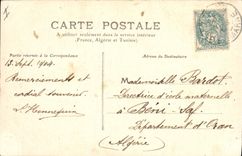 CARTE POSTALE
A utiliser seulement dans le service intérieur
(France, Algérie et Tunisie)
Partie réservée à la Correspondance
Adresse du Destinataire
13 Sept. 1904.
Remerciements et
cordial souvenir.
Mademoiselle Pardot
Directrice d'école maternelle
à Béni-Saf
Département d'Oran
Algérie